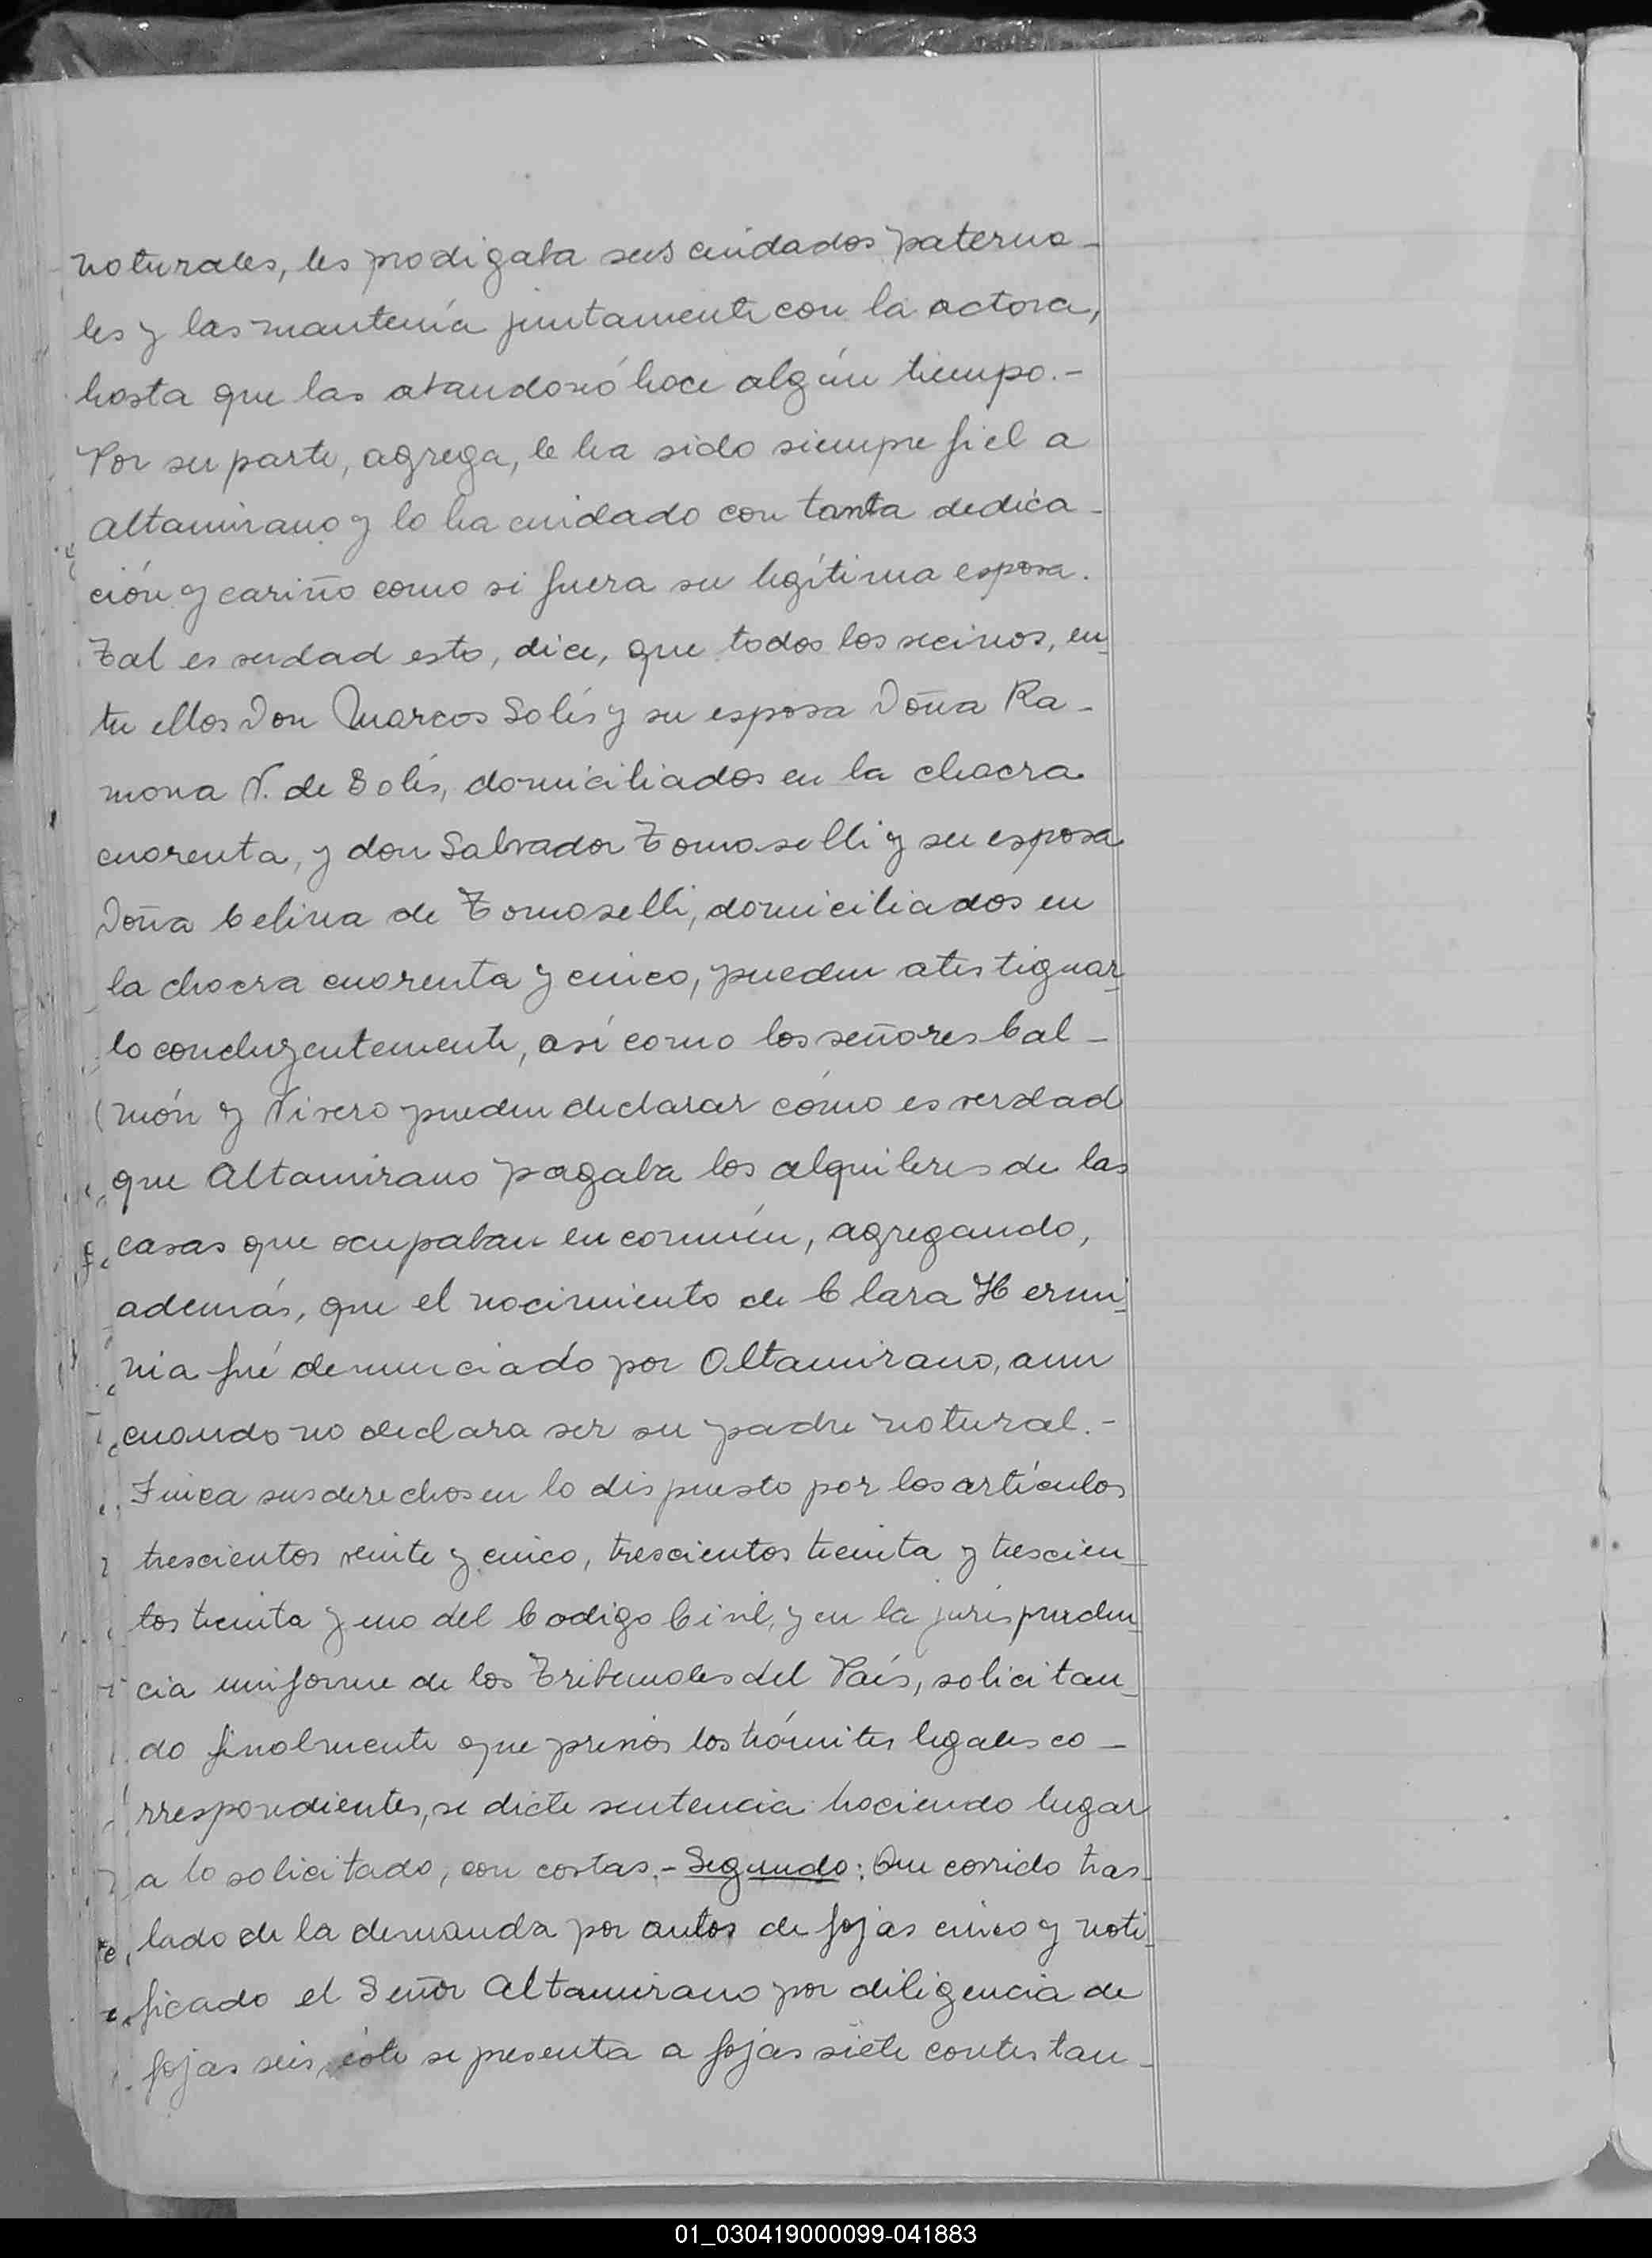 naturales, les prodigaba sus cuidados paterna-
les y las mantenía juntamente con la actora,
hasta que las abandonó hace algún tiempo.-
Por su parte, agrega, le ha sido siempre fiel a
Altamirano y lo ha cuidado con tanta dedica-
ción y cariño como si fuera su legítima esposa.
Tal es verdad esto, dice, que todos los vecinos, en-
tre ellos Don Marcos Solís y su esposa Doña Ra-
mona V. de Solís, domiciliados en la chacra
cuarenta, y don Salvador Tomaselli y su esposa
Doña Celina de Tomaselli, domiciliados en
la chacra cuarenta y cinco, pueden atestiguar-
lo concluyentemente, así como los señores Cal-
món y Vivero pueden declarar cómo es verdad
que Altamirano pagaba los alquileres de las
casas que ocupaban en común, agregando,
además, que el nacimiento de Clara Hermi-
nia fué denunciado por Altamirano, aun
cuando no declara ser su padre natural.-
Finca sus derechos en lo dispuesto por los artículos
trescientos veinte y cinco, trescientos treinta y trescien-
tos treinta y uno del Codigo Civil, y en la jurispruden-
cia uniforme de los Tribunales del País, solicitan-
do finalmente que previos los trámites legales co-
rrespondientes, se dicte sentencia haciendo lugar
a lo solicitado, con costas.- Segundo: Que corrido tras-
lado de la demanda por autos de fojas cinco y noti-
ficado el Señor Altamirano por diligencia de
fojas seis, éste se presenta a fojas siete contestan-
01_030419000099-041883